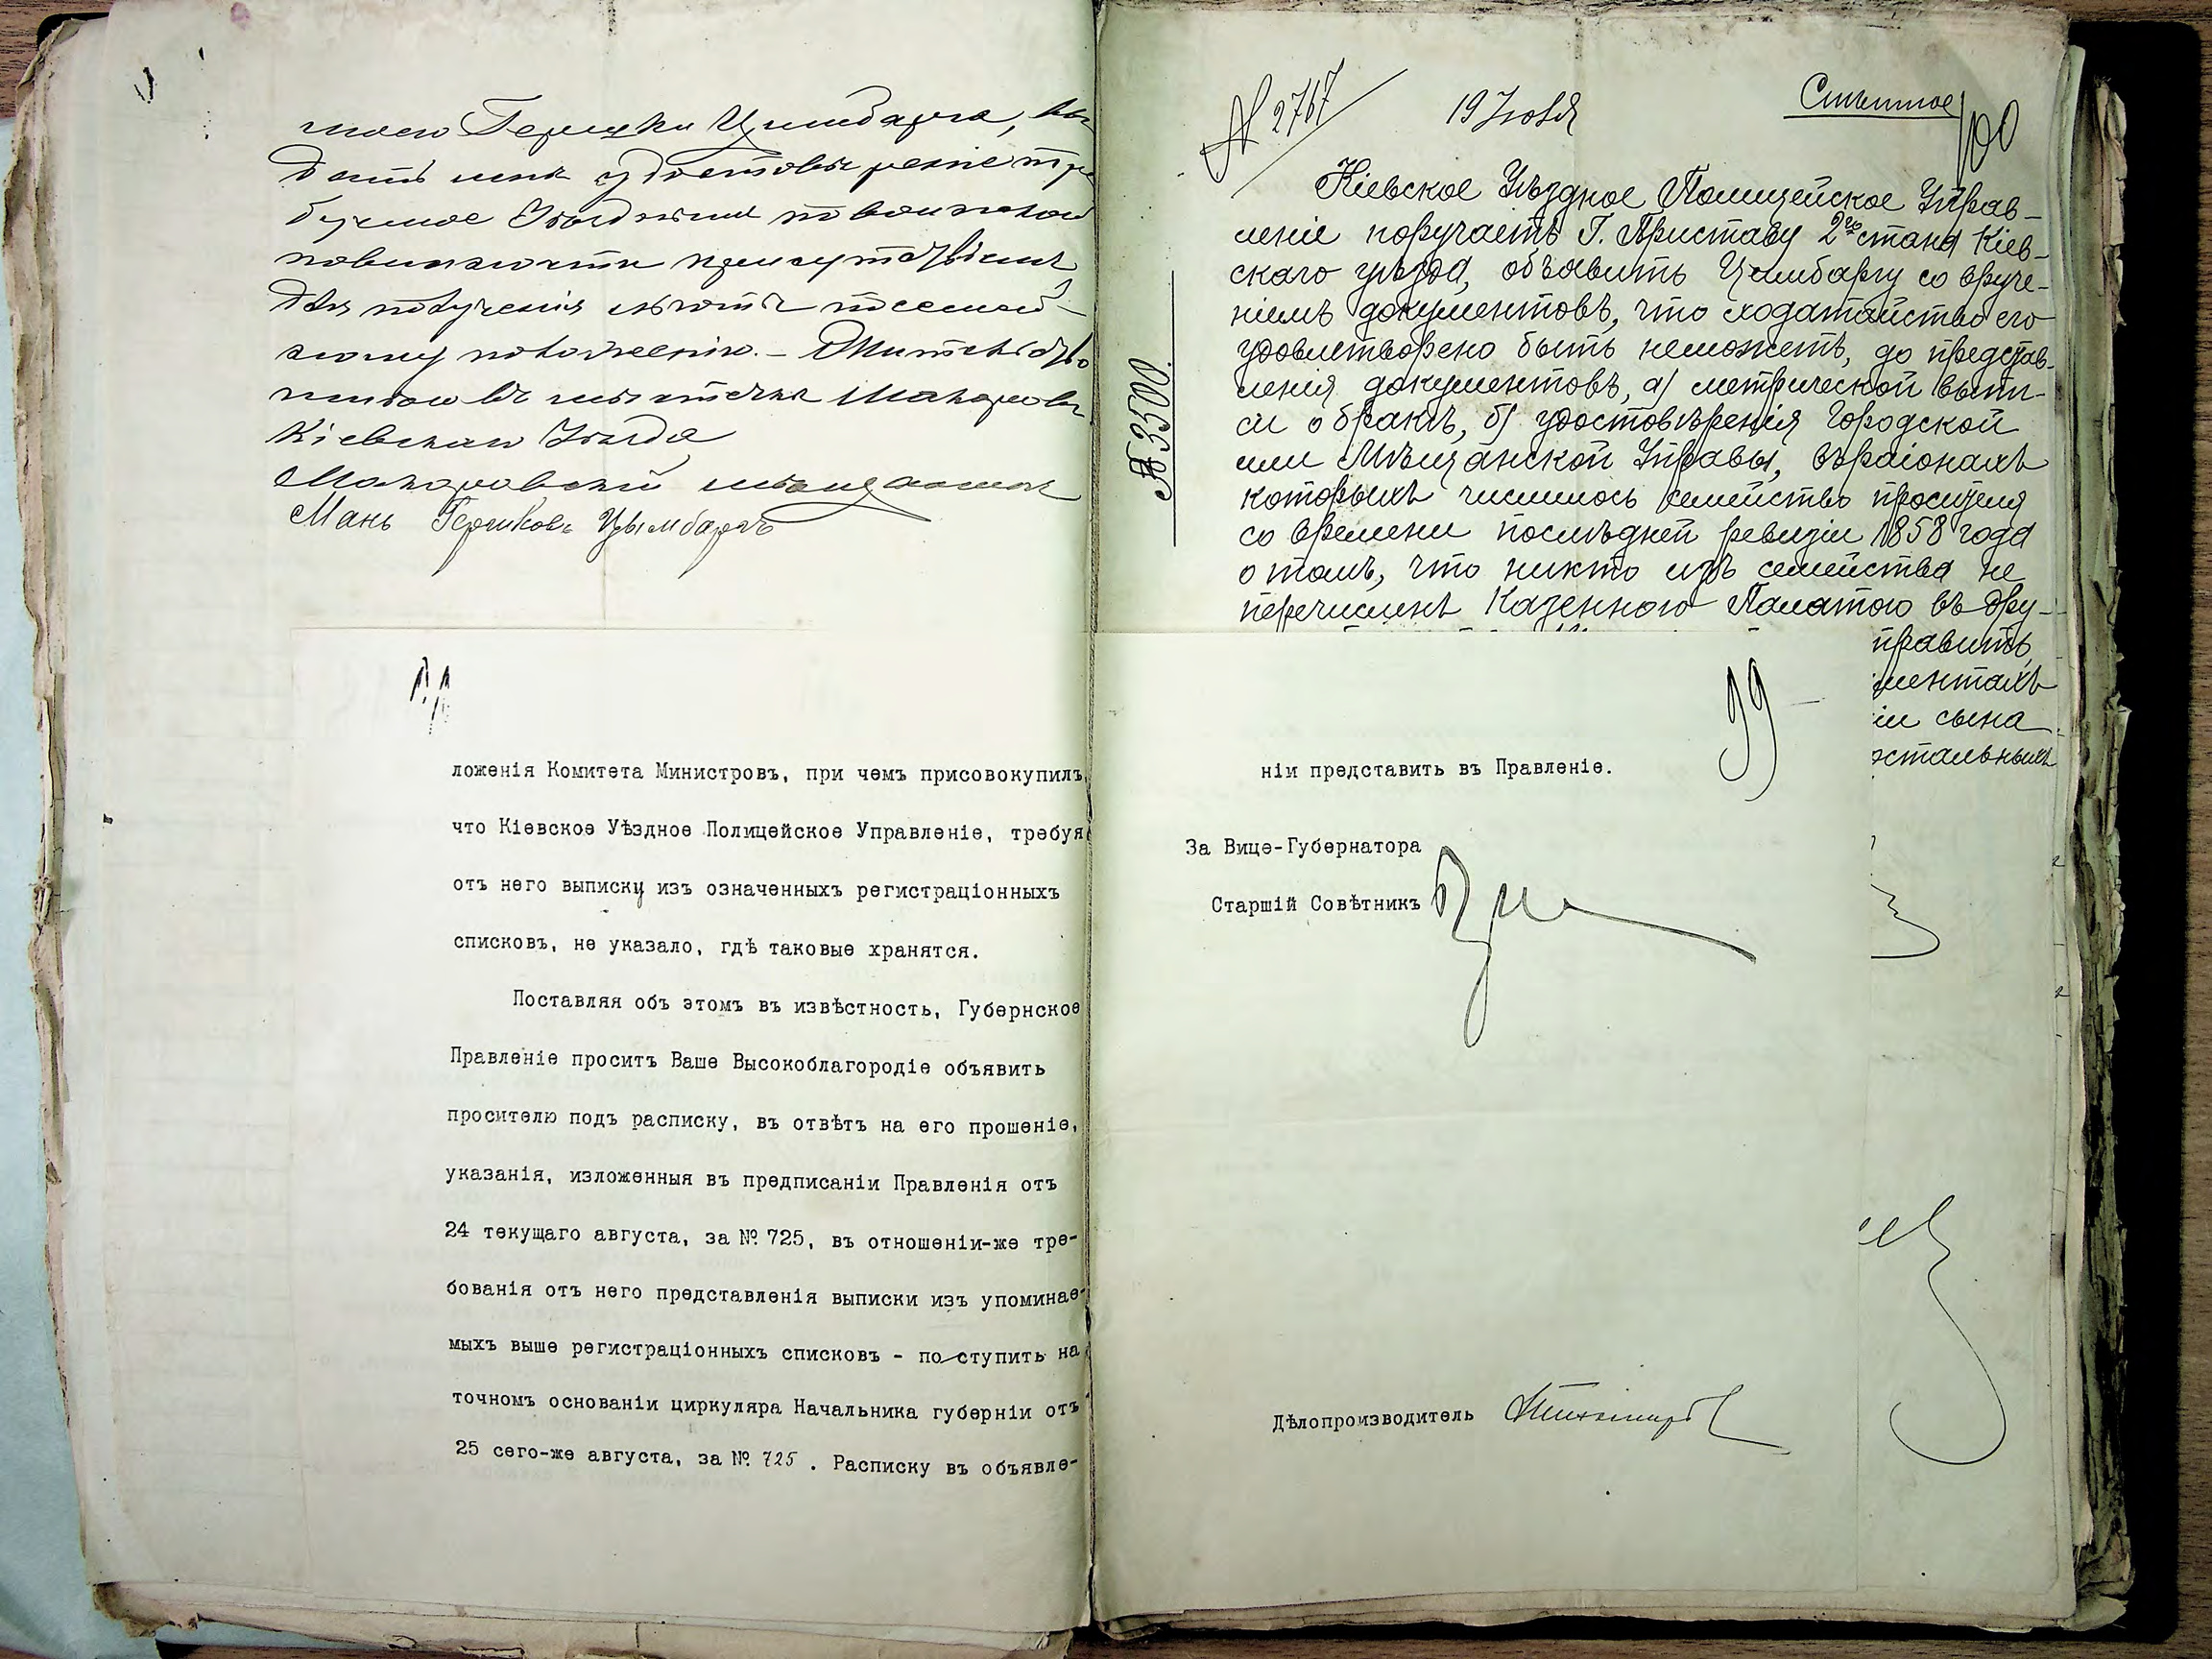 моего Гершки Цимбарга, вы-
дать мне удостоверение тре
буемое Уездным по воинской
повинности присутствием
для получения льготы по семей-
ному положению. – Жительство
имею в местечке Макарове
Киевскаго Уезда
Макаровский мещанин
Мань Гершковъ Цымбаргъ
ложенія Комитета Министровъ, при чемъ присовокупилъ,
что Кіевское Уѣздное Полицейское Управленіе, требуя
отъ него выписку изъ означенныхъ регистраціонныхъ
списковъ, не указало, гдѣ таковые хранятся.
Поставляя объ этомъ въ извѣстность, Губернское
Правленіе проситъ Ваше Высокоблагородіе объявить
просителю подъ расписку, въ отвѣтъ на его прошеніе,
указанія, изложенныя въ предписаніи Правленія отъ
24 текущаго августа, за № 725, въ отношеніи-же тре-
бованія отъ него представленія выписки изъ упоминае-
мыхъ выше регистраціонныхъ списковъ - поступить на
точномъ основаніи циркуляра Начальника губерніи отъ
25 сего-же августа, за № 725 . Расписку въ объявле-
№ 2767
19 Іюля
Спѣшное
100
Кіевское Уѣздное Полицейское Управ-
леніе поручаетъ Г. Приставу 2го стана Кіев-
скаго уѣзда, объявить Цимбаргу со вруче-
ніемъ документовъ, что ходатайство его
удовлетворено быть неможетъ, до представ-
ленія документовъ, а) метрической выпи-
си о бракѣ, б) удостовѣренія Городской
или Мѣщанской Управы, въ раіонахъ
которыхъ числилось семейство просителя
со времени послѣдней ревизіи 1858 года
о томъ, что никто изъ семейства не
перечисленъ Казенною Палатою въ дру-
править,
ументахъ
іи сына
остальныхъ
№ 3500.
99
ніи представить въ Правленіе.
За Вице-Губернатора
Старшій Совѣтникъ
Дѣлопроизводитель